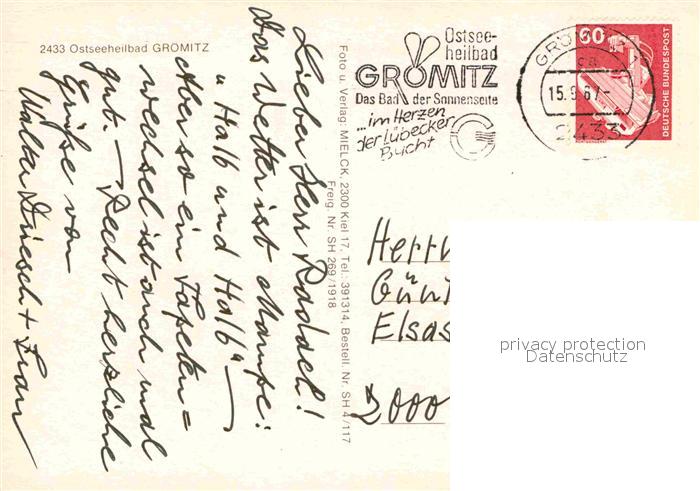 2433 Ostseeheilbad GRÖMITZ
Lieber Herr Raddael!
Das Wetter ist Mampe:
„Halb und Halb" —
Aber so ein Tapeten=
wechsel ist auch mal
gut. — Recht herzliche
Grüße von
Walter + Frau
Foto u. Verlag: MIELCK, 2300 Kiel 17, Tel.: 391314, Bestell. Nr. SH 4/117
Freig. Nr. SH 269/1918
Ostsee-
heilbad
GRÖMITZ
Das Bad der Sonnenseite
...im Herzen
der Lübecker
Bucht
GRÖMITZ 1
15.9.87
2433
60
DEUTSCHE BUNDESPOST
Herrn
Günt
Elsas
2000
privacy protection
Datenschutz